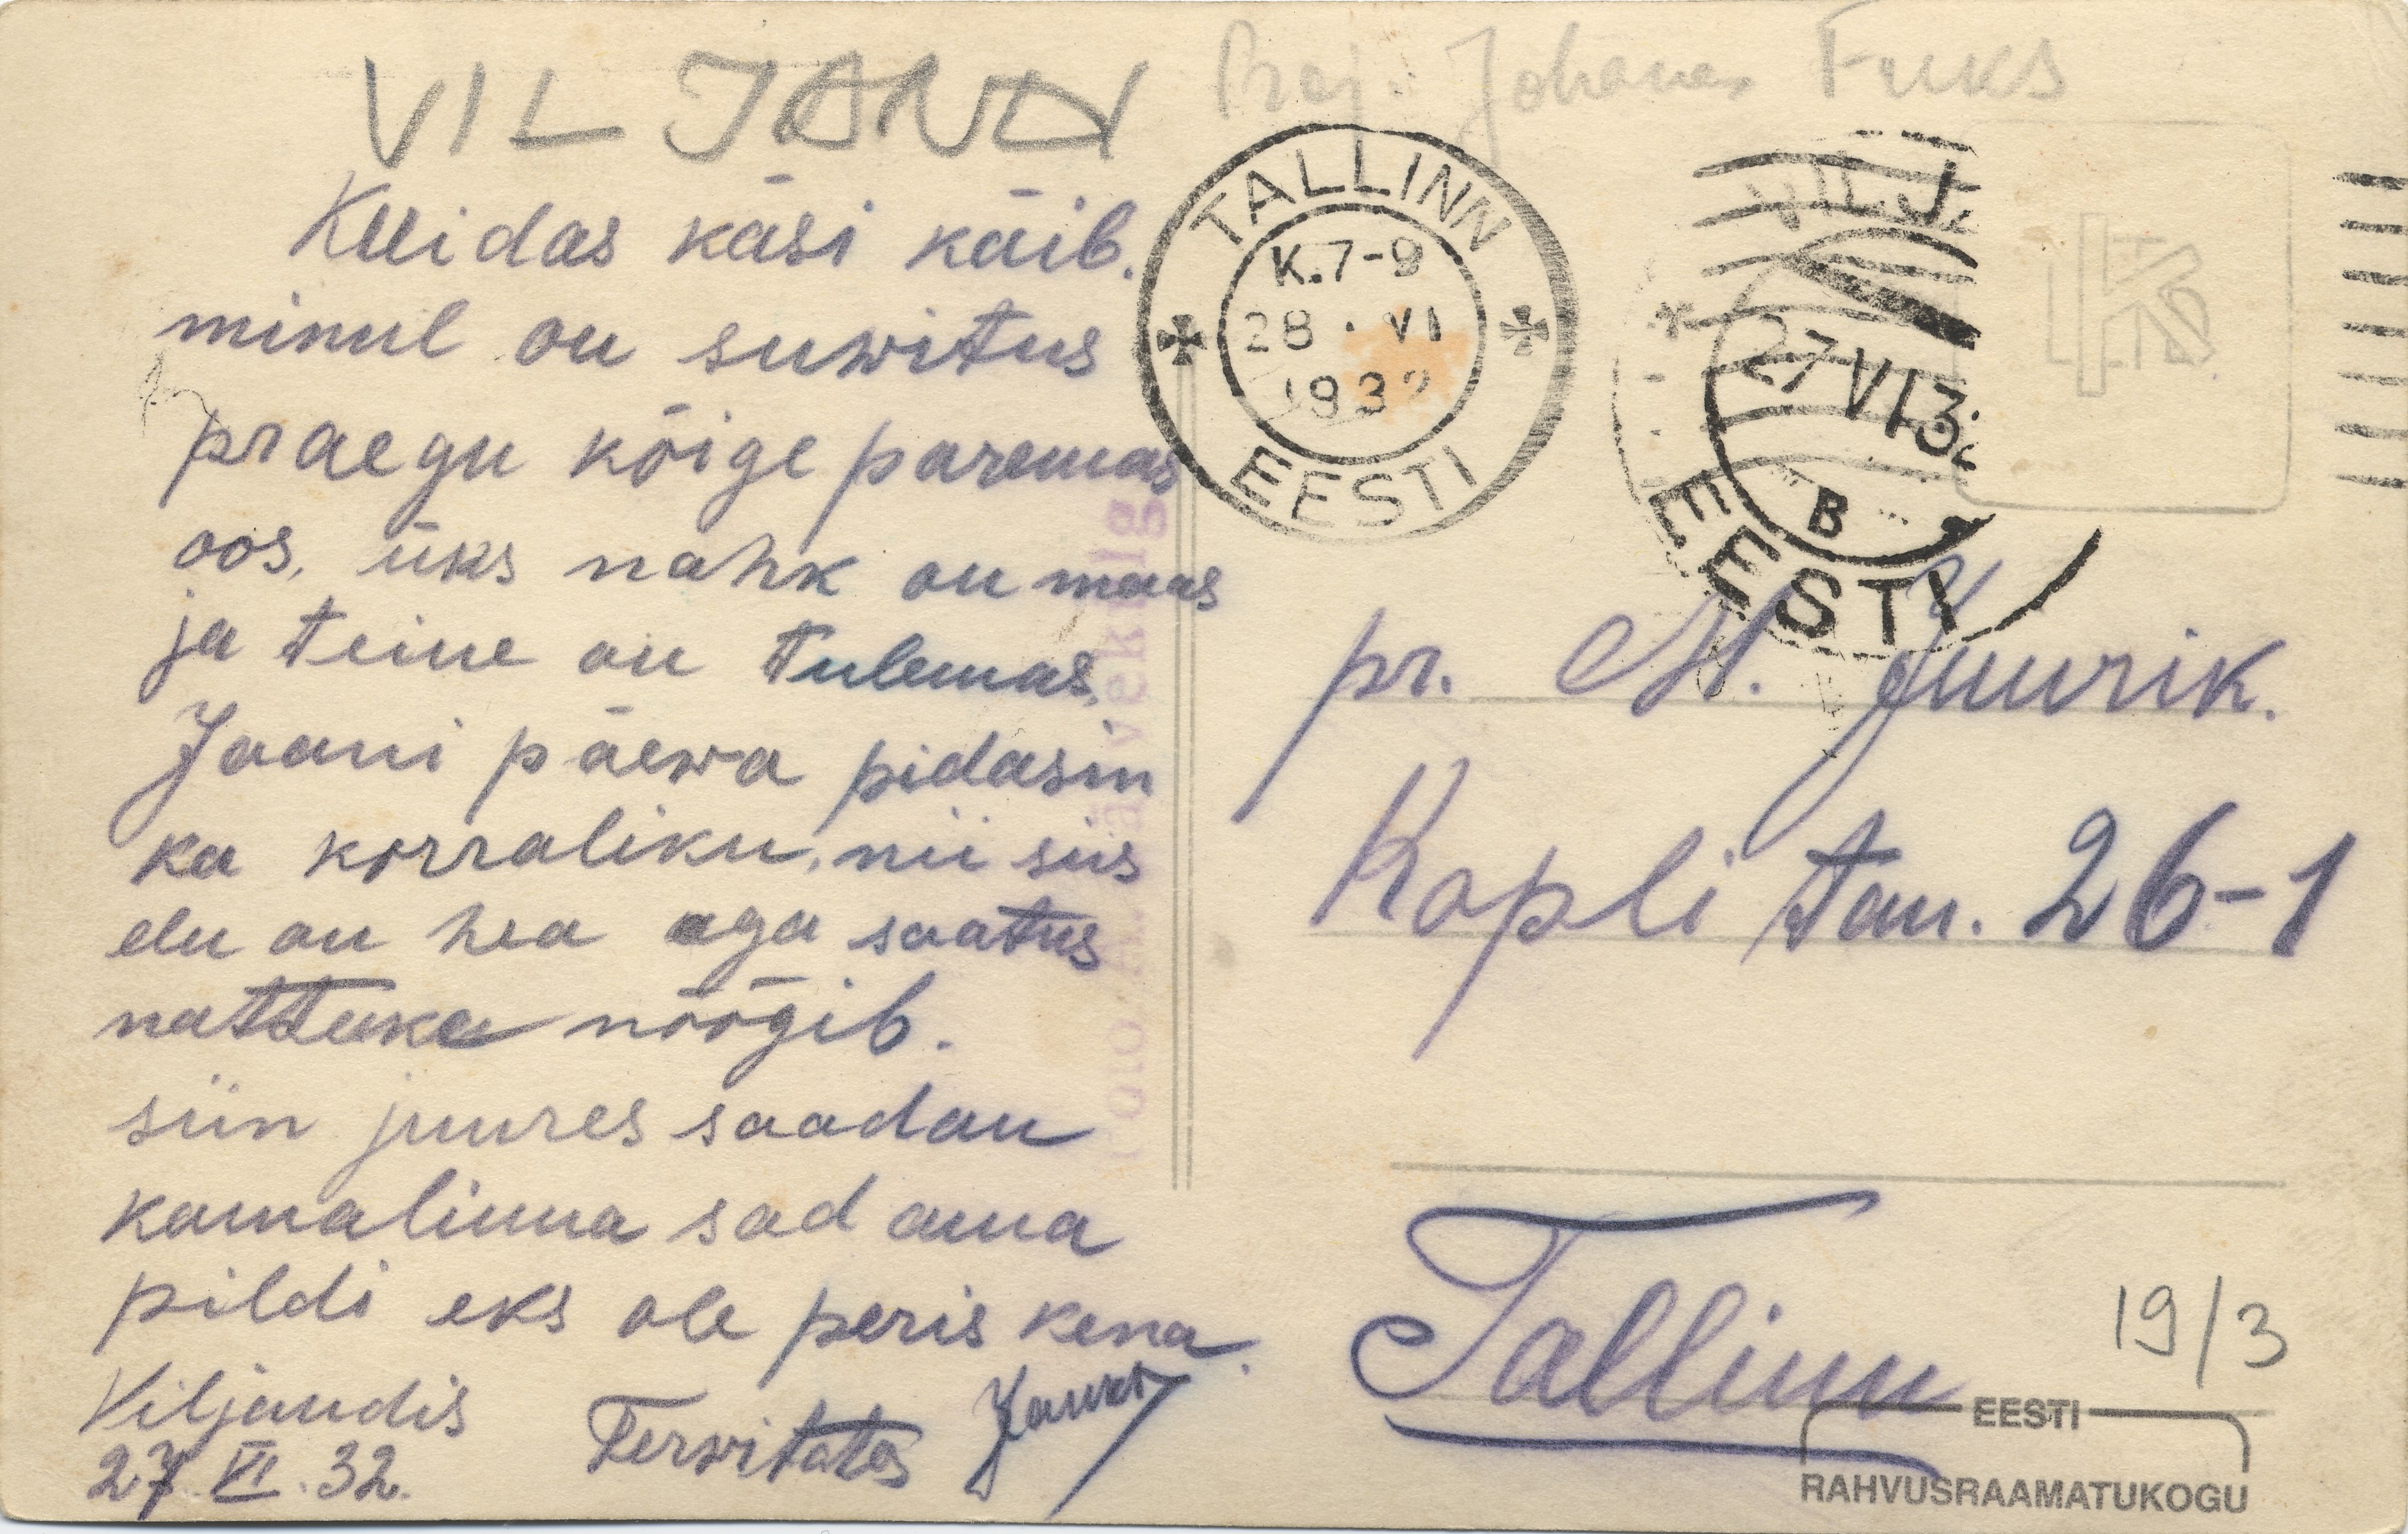 VILJANDI
Proj. Johannes Fuks
Kuidas käsi käib.
minul on suwitus
praegu kõige paremas
oos, üks nahk on maas
ja teine on tulemas,
Jaani päewa pidasin
ka korraliku, nii siis
elu on hea aga saatus
nattuke nöögib.
siin juures saadan
kamalinna sadama
pildi eks ole peris kena.
Viljandis
27.VI.32.
Terwitates
TALLINN
K.7-9
28.VI
1932
EESTI
VILJA
27VI32
B
EESTI
pr. M. Juurik.
Kopli tan. 26-1
Tallinn
19/3
EESTI
RAHVUSRAAMATUKOGU